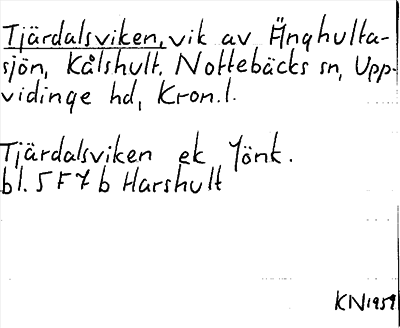 Tjärdalsviken, vik av Änghulta-
sjön, Kålshult, Nottebäcks sn, Upp-
vidinge hd, Kron.l.
Tjärdalsviken ek Jönk.
bl. 5 F 7 b Harshult
KN 1959